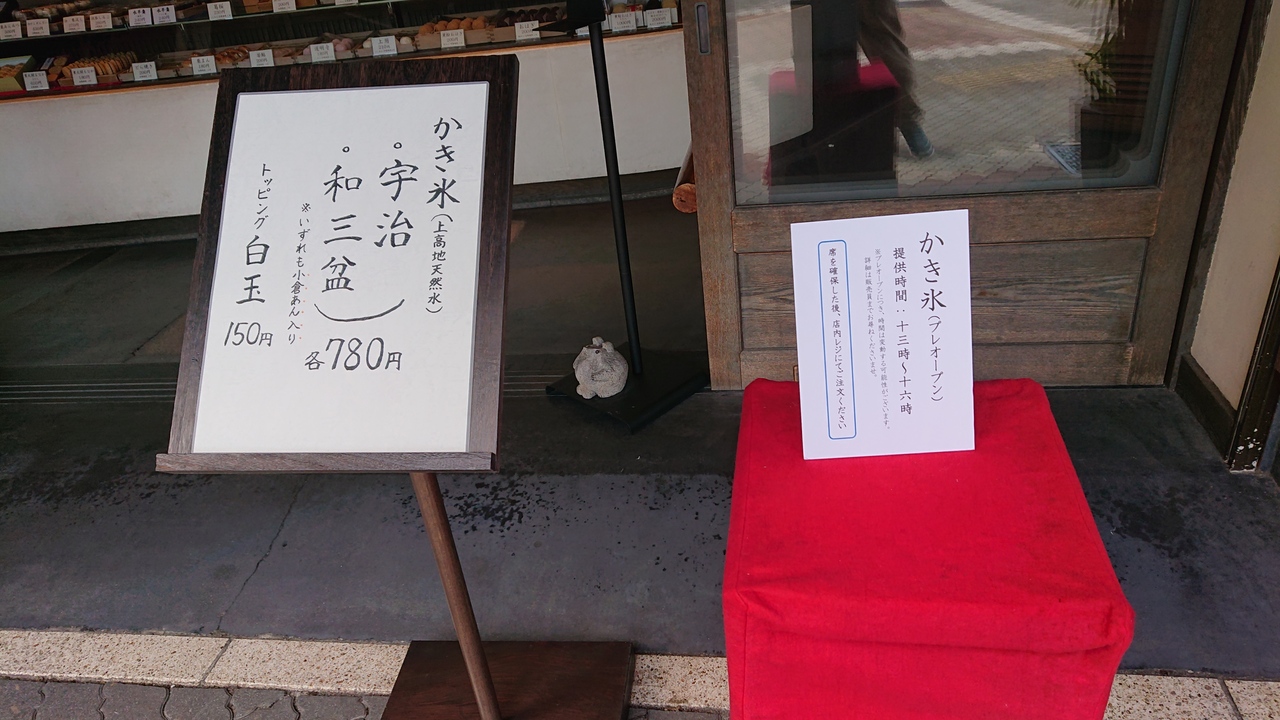 かき氷(上高地天然氷)
。宇治
。和三盆
各780円
※いずれも小倉あん入り
トッピング 白玉
150円
かき氷(プレオープン)
提供時間：十三時～十六時
※プレオープンにつき、時間は変動する可能性がございます。
詳細は販売員までお尋ねくださいませ。
席を確保した後、店内レジにてご注文ください